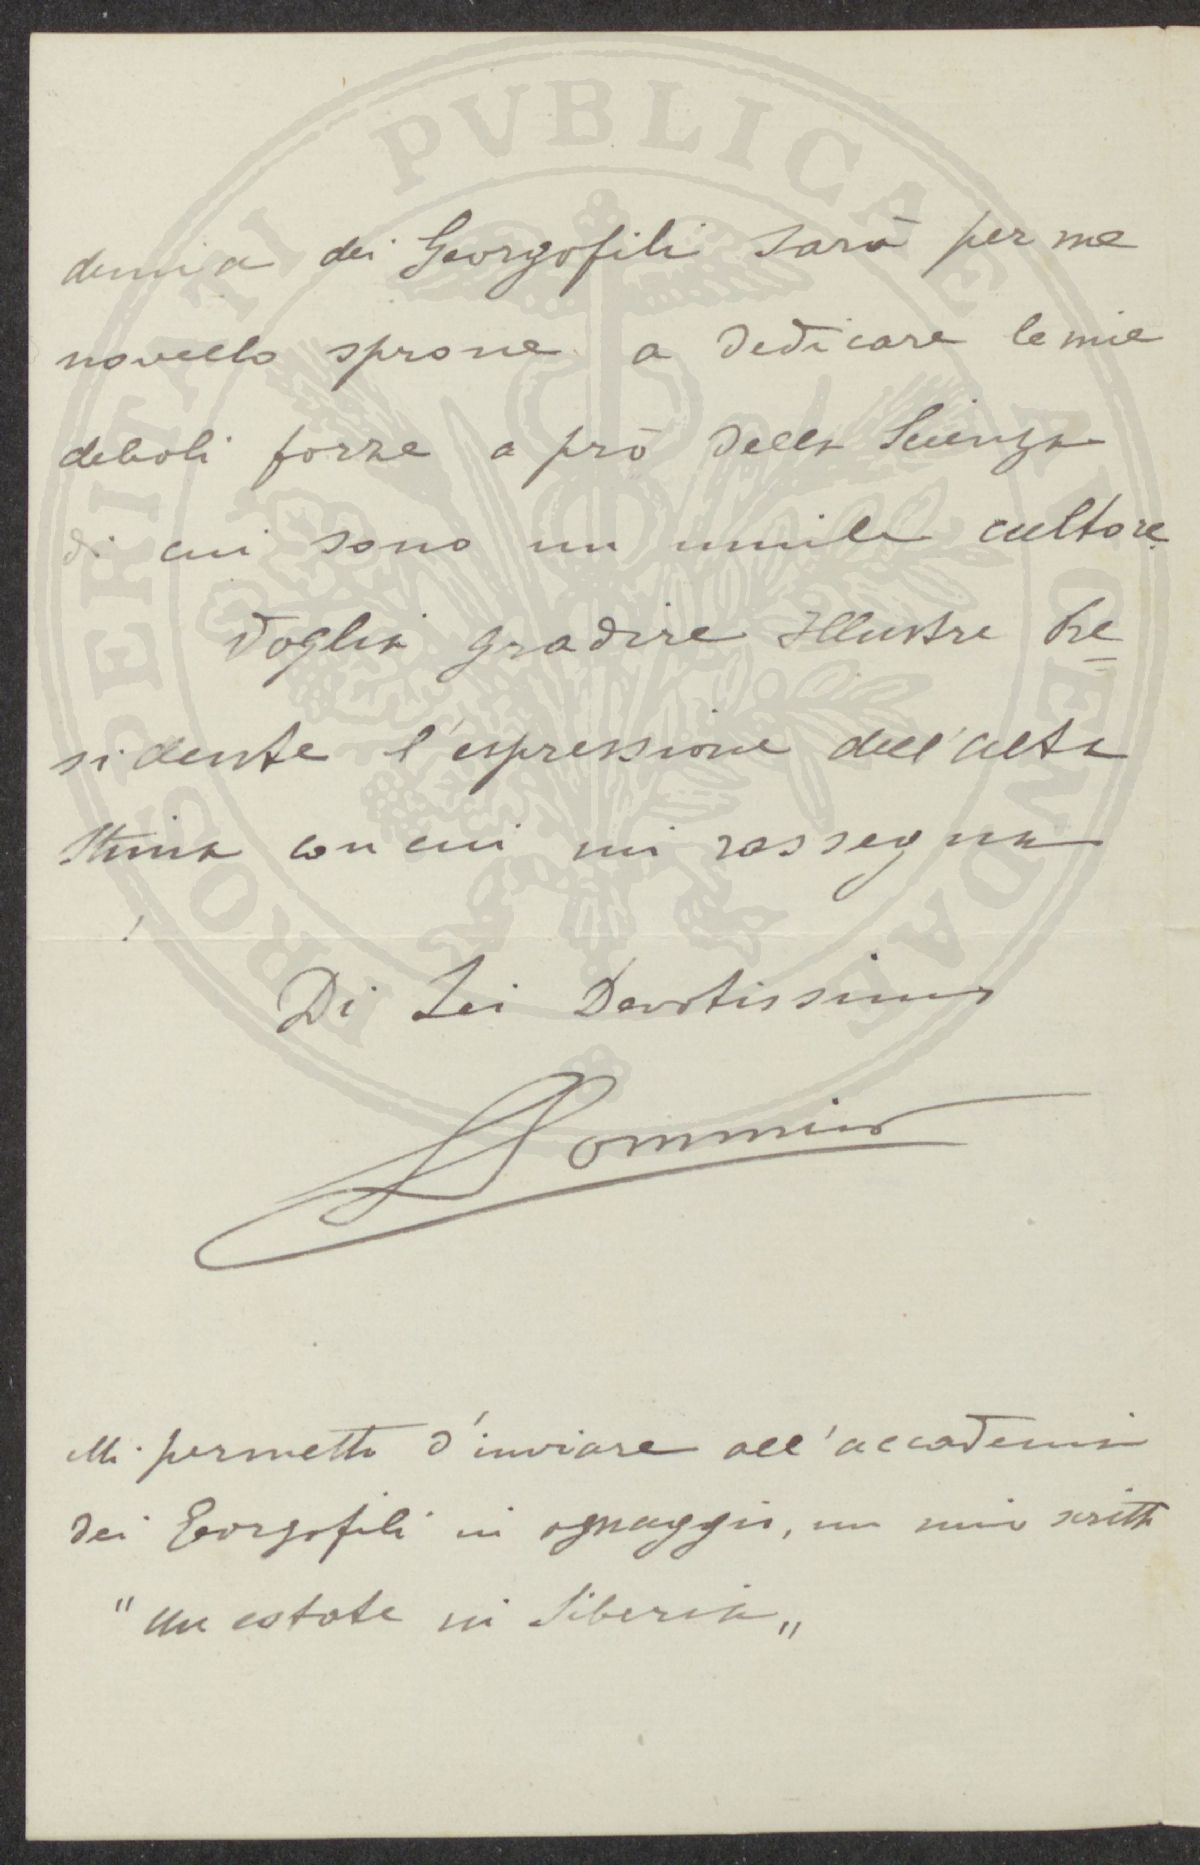 PROSPERITATI PVBLICAE AVGENDAE
demia dei Georgofili sarà per me
novello sprone a dedicare le mie
deboli forze a prò della Scienza
di cui sono un umile cultore.
Voglia gradire Illustre Pre=
sidente l'espressione dell'alta
stima con cui mi rassegno
Di Lei Devotissimo
SSommier
Mi permetto d'inviare all'accademia
dei Georgofili in omaggio, un mio scritto
"Un estate in Siberia"